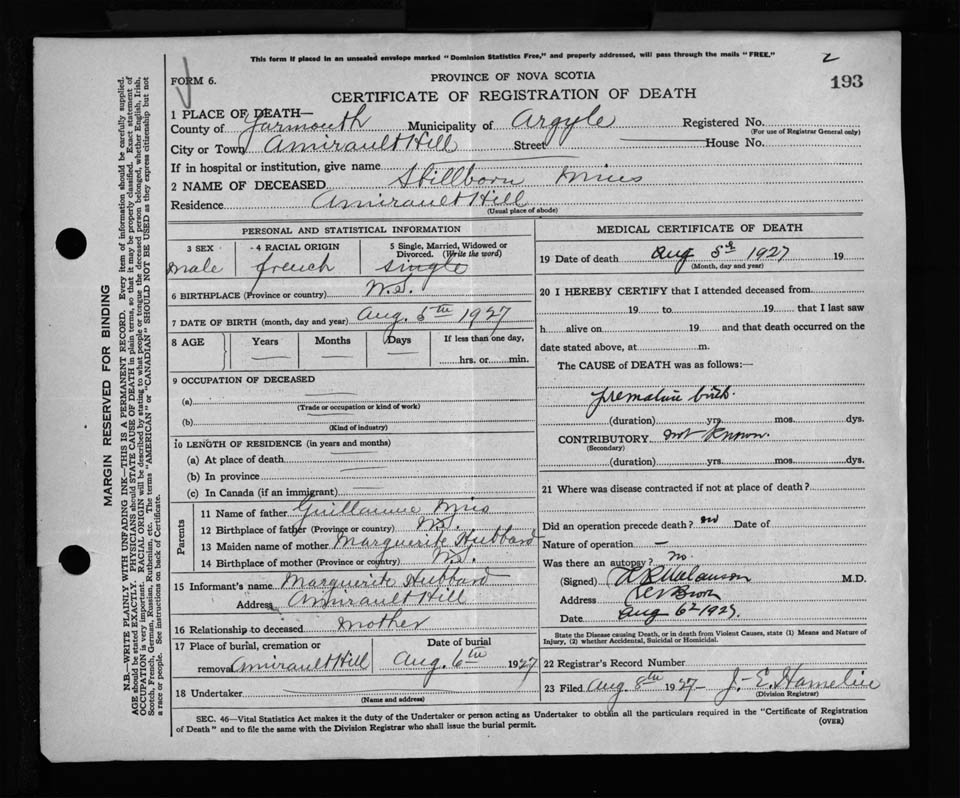 This form if placed in an unsealed envelope marked "Dominion Statistics Free," and properly addressed, will pass through the mails "FREE."
2
FORM 6.
PROVINCE OF NOVA SCOTIA
193
CERTIFICATE OF REGISTRATION OF DEATH
1 PLACE OF DEATH—
County of Yarmouth Municipality of Argyle Registered No.
(For use of Registrar General only)
City or Town Amirault Hill Street House No.
If in hospital or institution, give name
2 NAME OF DECEASED Stillborn Mius
Residence Amirault Hill
(Usual place of abode)
PERSONAL AND STATISTICAL INFORMATION
3 SEX 4 RACIAL ORIGIN 5 Single, Married, Widowed or Divorced. (Write the word)
male french single
6 BIRTHPLACE (Province or country) N.S.
7 DATE OF BIRTH (month, day and year) Aug. 5th 1927
8 AGE Years Months Days If less than one day,
hrs. or min.
9 OCCUPATION OF DECEASED
(a)
(Trade or occupation or kind of work)
(b)
(Kind of industry)
10 LENGTH OF RESIDENCE (in years and months)
(a) At place of death
(b) In province
(c) In Canada (if an immigrant)
Parents
11 Name of father Guillaume Mius
12 Birthplace of father (Province or country) N.S.
13 Maiden name of mother Marguerite Hubbard
14 Birthplace of mother (Province or country) N.S.
15 Informant's name Marguerite Hubbard
Address Amirault Hill
16 Relationship to deceased mother
17 Place of burial, cremation or Date of burial
removal Amirault Hill Aug. 6th 1927
18 Undertaker
(Name and address)
MEDICAL CERTIFICATE OF DEATH
19 Date of death Aug 5th 1927 19
(Month, day and year)
20 I HEREBY CERTIFY that I attended deceased from
19 to 19 that I last saw
h alive on 19 and that death occurred on the
date stated above, at m.
The CAUSE of DEATH was as follows:—
premature birth.
(duration) yrs. mos. dys.
CONTRIBUTORY not known.
(Secondary)
(duration) yrs. mos. dys.
21 Where was disease contracted if not at place of death?
Did an operation precede death? no Date of
Nature of operation —
Was there an autopsy? no.
(Signed) Melanson M.D.
Address
Date Aug 6th 1927
State the Disease causing Death, or in death from Violent Causes, state (1) Means and Nature of Injury, (2) whether Accidental, Suicidal or Homicidal.
22 Registrar's Record Number
23 Filed Aug 8th 1927 J. E. Hamelin
(Division Registrar)
SEC. 46—Vital Statistics Act makes it the duty of the Undertaker or person acting as Undertaker to obtain all the particulars required in the "Certificate of Registration
of Death" and to file the same with the Division Registrar who shall issue the burial permit.
(OVER)
MARGIN RESERVED FOR BINDING
N.B.—WRITE PLAINLY WITH UNFADING INK—THIS IS A PERMANENT RECORD. Every item of information should be carefully supplied.
AGE should be stated EXACTLY. PHYSICIANS should STATE CAUSE OF DEATH in plain terms, so that it may be properly classified. Exact statement of
OCCUPATION is very important. RACIAL ORIGIN will be described by stating to what people or tongue the deceased person belonged, whether English, Irish,
Scotch, French, German, Russian, Ruthenian, etc. The terms "AMERICAN" or "CANADIAN" SHOULD NOT BE USED as they express citizenship but not
a race or people. See instructions on back of Certificate.